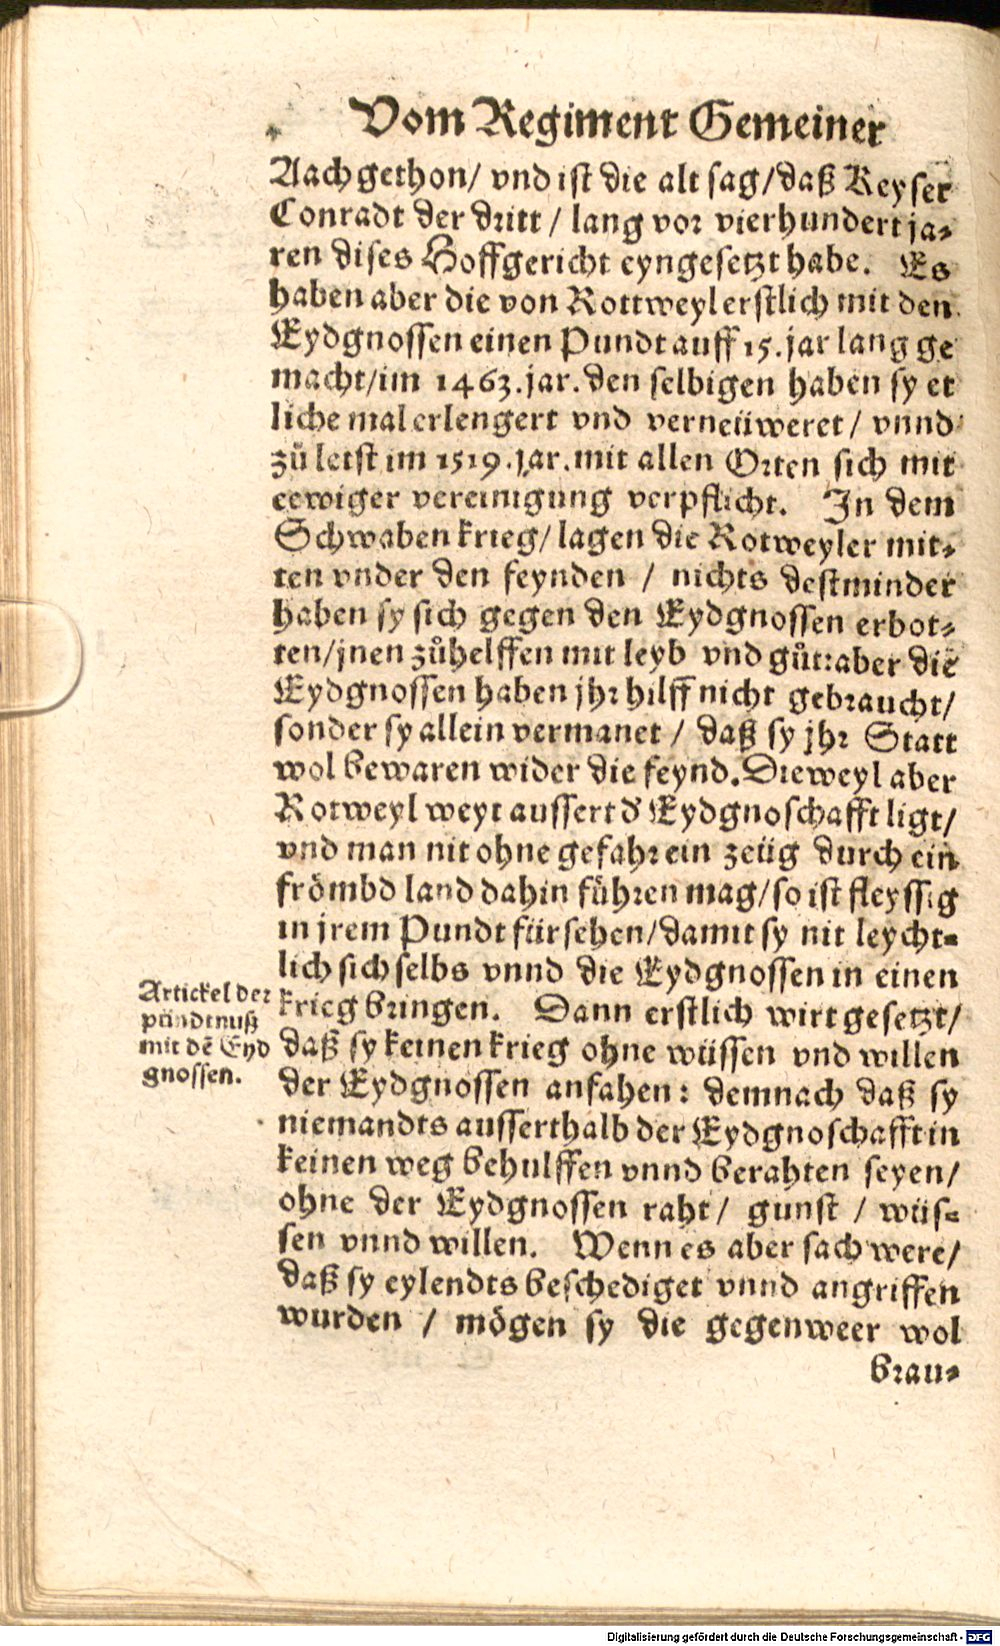 Vom Regiment Gemeiner
Aach gethon/ vnd ist die alt sag/ daß Keyser
Conradt der dritt / lang vor vierhundert ja⸗
ren dises Hoffgericht eyngesetzt habe. Es
haben aber die von Rottweyl erstlich mit den
Eydgnossen einen Pundt auff 15. jar lang ge
macht/ im 1463. jar. den selbigen haben sy et
liche mal erlengert vnd verneüweret / vnnd
zů letst im 1519. jar. mit allen Orten sich mit
eewiger vereinigung verpflicht. In dem
Schwaben krieg/ lagen die Rotweyler mit⸗
ten vnder den feynden / nichts destminder
haben sy sich gegen den Eydgnossen erbot⸗
ten/ jnen zůhelffen mit leyb vnd gůt: aber die
Eydgnossen haben jhr hilff nicht gebraucht/
sonder sy allein vermanet / daß sy jhr Statt
wol bewaren wider die feynd. Dieweyl aber
Rotweyl weyt aussert d' Eydgnoschafft ligt/
vnd man nit ohne gefahr ein zeüg durch ein
frömbd land dahin führen mag/ so ist fleyssig
in jrem Pundt fürsehen/ damit sy nit leycht⸗
lich sich selbs vnnd die Eydgnossen in einen
krieg bringen. Dann erstlich wirt gesetzt/
daß sy keinen krieg ohne wüssen vnd willen
der Eydgnossen anfahen: demnach daß sy
niemandts ausserthalb der Eydgnoschafft in
keinen weg behulffen vnnd berahten seyen/
ohne der Eydgnossen raht/ gunst / wüs⸗
sen vnnd willen. Wenn es aber sach were/
daß sy eylendts beschediget vnnd angriffen
wurden / mögen sy die gegenweer wol
brau⸗
Artickel der
pündtnuß
mit dē Eyd
gnossen.
Digitalisierung gefördert durch die Deutsche Forschungsgemeinschaft - DFG